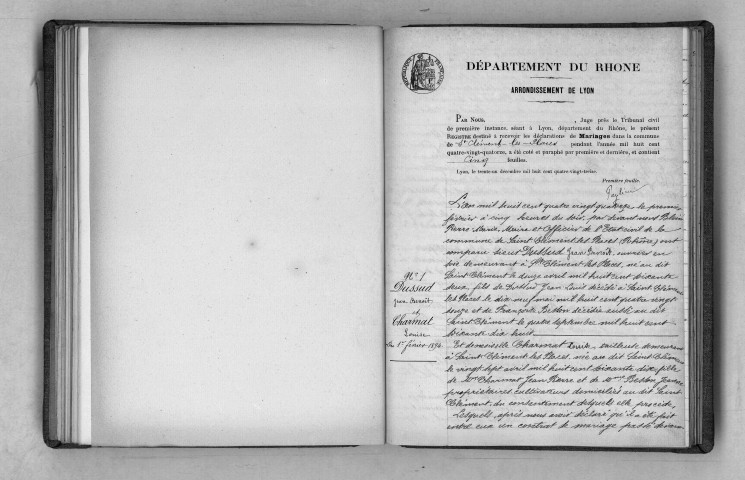 RÉPUBLIQUE FRANÇAISE
DÉPARTEMENT DU RHONE
ARRONDISSEMENT DE LYON
PAR NOUS, , Juge près le Tribunal civil
de première instance, séant à Lyon, département du Rhône, le présent
REGISTRE destiné à recevoir les déclarations de Mariages dans la commune
de St Clément-les-Places pendant l'année mil huit cent
quatre-vingt-quatorze, a été coté et paraphé par première et dernière, et contient
Cinq feuilles.
Lyon, le trente en décembre mil huit cent quatre-vingt-treize.
Première feuille.
L'an mil huit cent quatre vingt quatorze, le premier
février à cinq heures du soir, par devant nous
Pierre Marie, Maire et Officier de l'Etat civil de la
commune de Saint Clément les Places (Rhône) ont
comparu sieur Dussud Jean Benoit, ouvrier en
soie demeurant à St Clément les Places, né au dit
Saint Clément le douze avril mil huit cent soixante
deux, fils de Dussud Jean Louis décédé à Saint Clément
les Places le dix neuf mai mil huit cent quatre vingt
douze et de Françoise Besson décédée au dit
Saint Clément le quatre septembre mil huit cent
soixante dix huit.
Et demoiselle Charmat Louise, tailleuse demeurant
à Saint Clément les Places, née au dit Saint Clément
le vingt sept avril mil huit cent soixante dix, fille
de Mr Charmat Jean Pierre et de Mme Besson Jeanne
propriétaires cultivateurs domiciliés au dit Saint
Clément, du consentement desquels elle procède.
Lesquels, après nous avoir déclaré qu'il a été fait
entre eux un contrat de mariage passé devant
No 1
Dussud
Jean Benoit
et
Charmat
Louise
du 1er février 1894